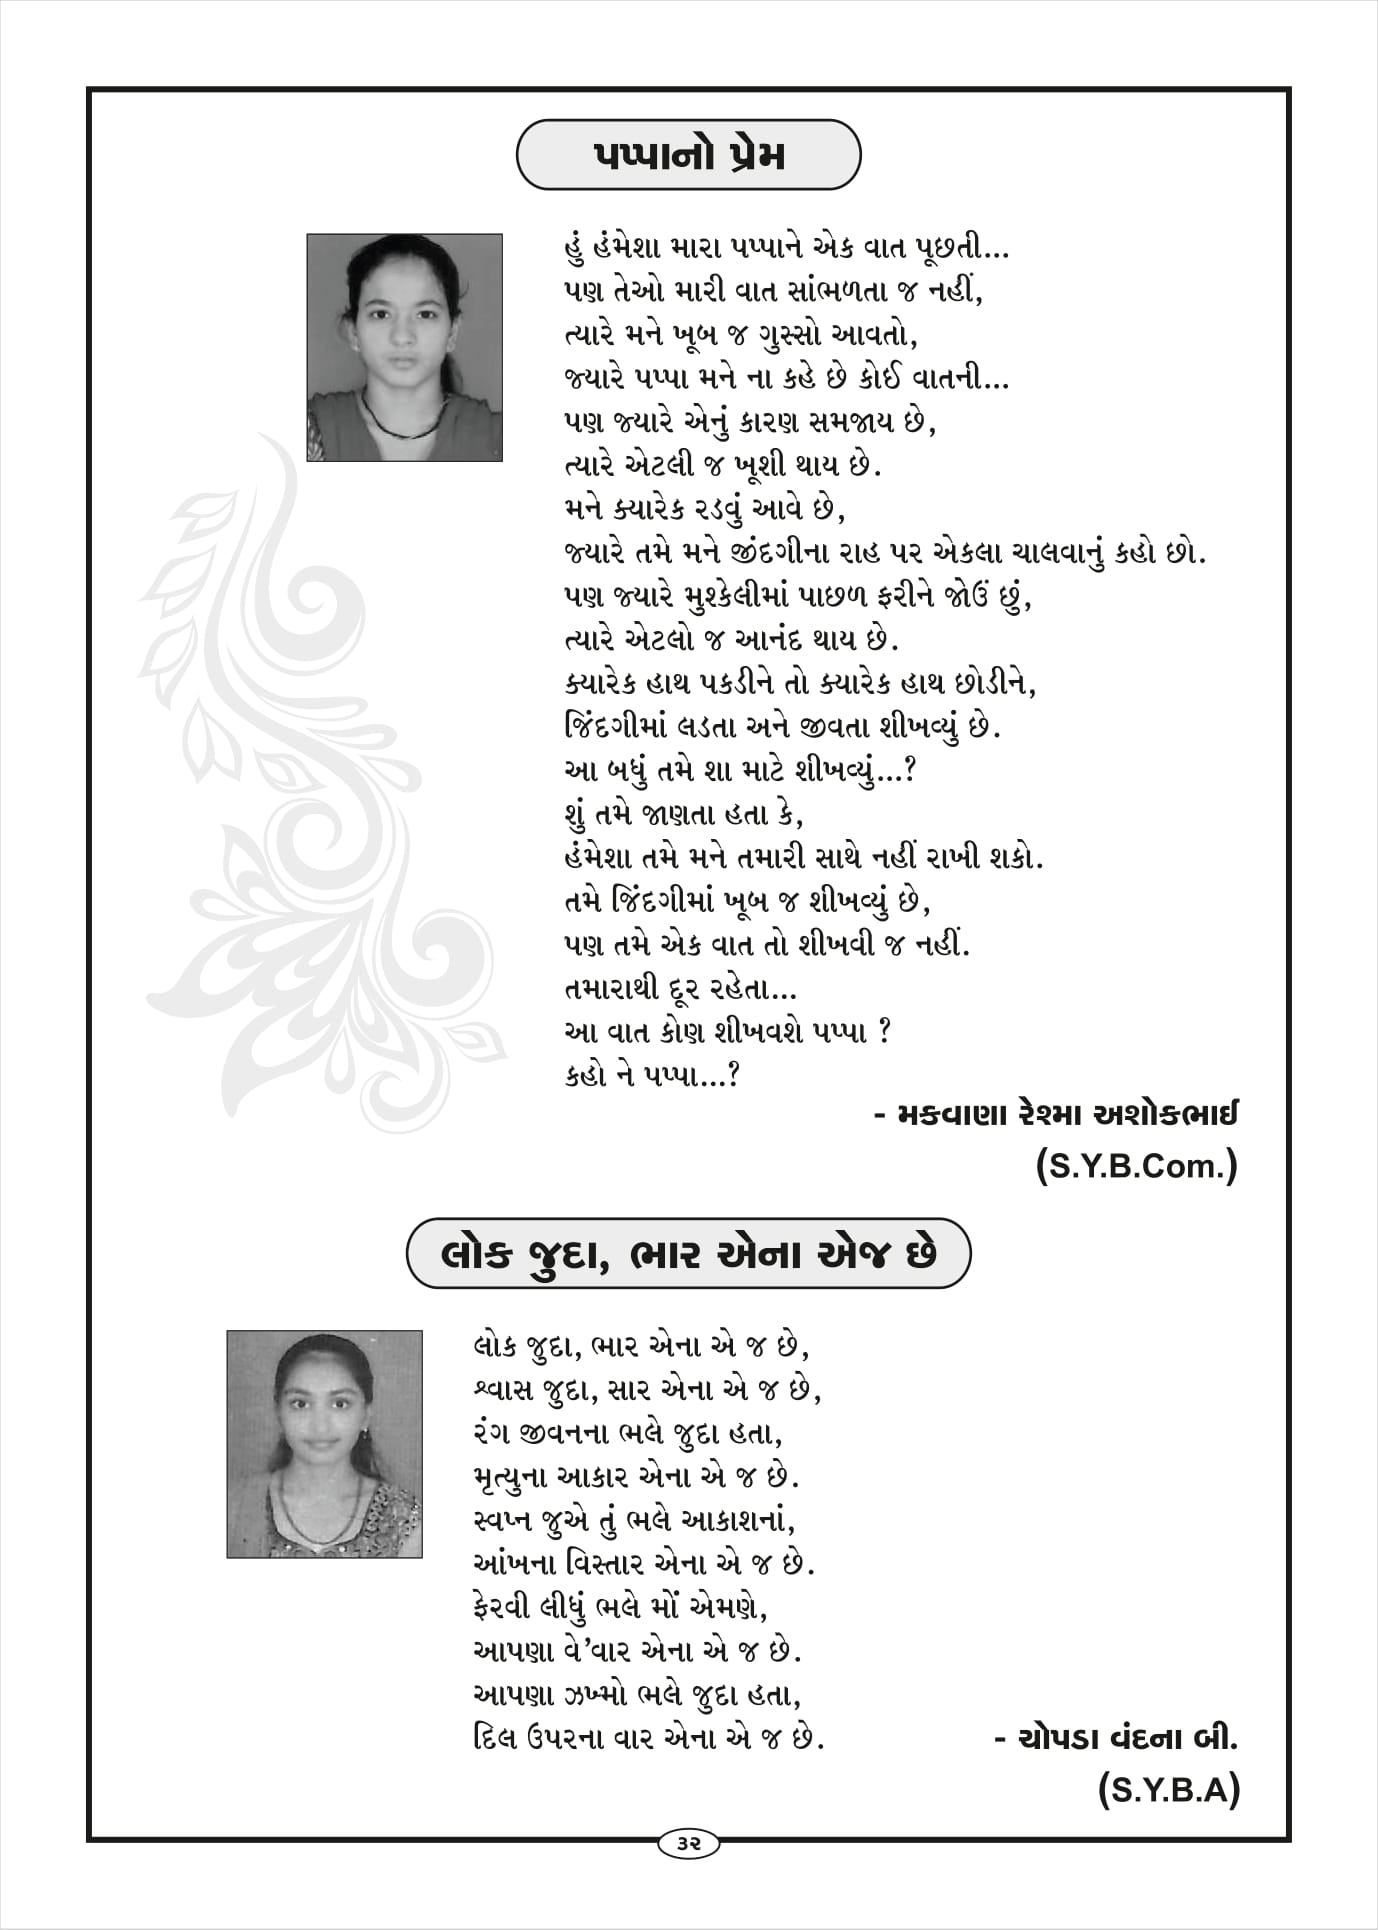 પપ્પાનો પ્રેમ
હું હંમેશા મારા પપ્પાને એક વાત પૂછતી...
પણ તેઓ મારી વાત સાંભળતા જ નહીં,
ત્યારે મને ખૂબ જ ગુસ્સો આવતો,
જ્યારે પપ્પા મને ના કહે છે કોઈ વાતની...
પણ જ્યારે એનું કારણ સમજાય છે,
ત્યારે એટલી જ ખૂશી થાય છે.
મને ક્યારેક રડવું આવે છે,
જ્યારે તમે મને જીંદગીના રાહ પર એકલા ચાલવાનું કહો છો.
પણ જ્યારે મુશ્કેલીમાં પાછળ ફરીને જોઉં છું,
ત્યારે એટલો જ આનંદ થાય છે.
ક્યારેક હાથ પકડીને તો ક્યારેક હાથ છોડીને,
જિંદગીમાં લડતા અને જીવતા શીખવ્યું છે.
આ બધું તમે શા માટે શીખવ્યું...?
શું તમે જાણતા હતા કે,
હંમેશા તમે મને તમારી સાથે નહીં રાખી શકો.
તમે જિંદગીમાં ખૂબ જ શીખવ્યું છે,
પણ તમે એક વાત તો શીખવી જ નહીં.
તમારાથી દૂર રહેતા...
આ વાત કોણ શીખવશે પપ્પા ?
કહો ને પપ્પા...?
- મકવાણા રેશ્મા અશોકભાઈ
(S.Y.B.Com.)
લોક જુદા, ભાર એના એજ છે
લોક જુદા, ભાર એના એ જ છે,
શ્વાસ જુદા, સાર એના એ જ છે,
રંગ જીવનના ભલે જુદા હતા,
મૃત્યુના આકાર એના એ જ છે.
સ્વપ્ન જુએ તું ભલે આકાશનાં,
આંખના વિસ્તાર એના એ જ છે.
ફેરવી લીધું ભલે મોં એમણે,
આપણા વે'વાર એના એ જ છે.
આપણા ઝખ્મો ભલે જુદા હતા,
દિલ ઉપરના વાર એના એ જ છે.
- ચોપડા વંદના બી.
(S.Y.B.A)
૩૨